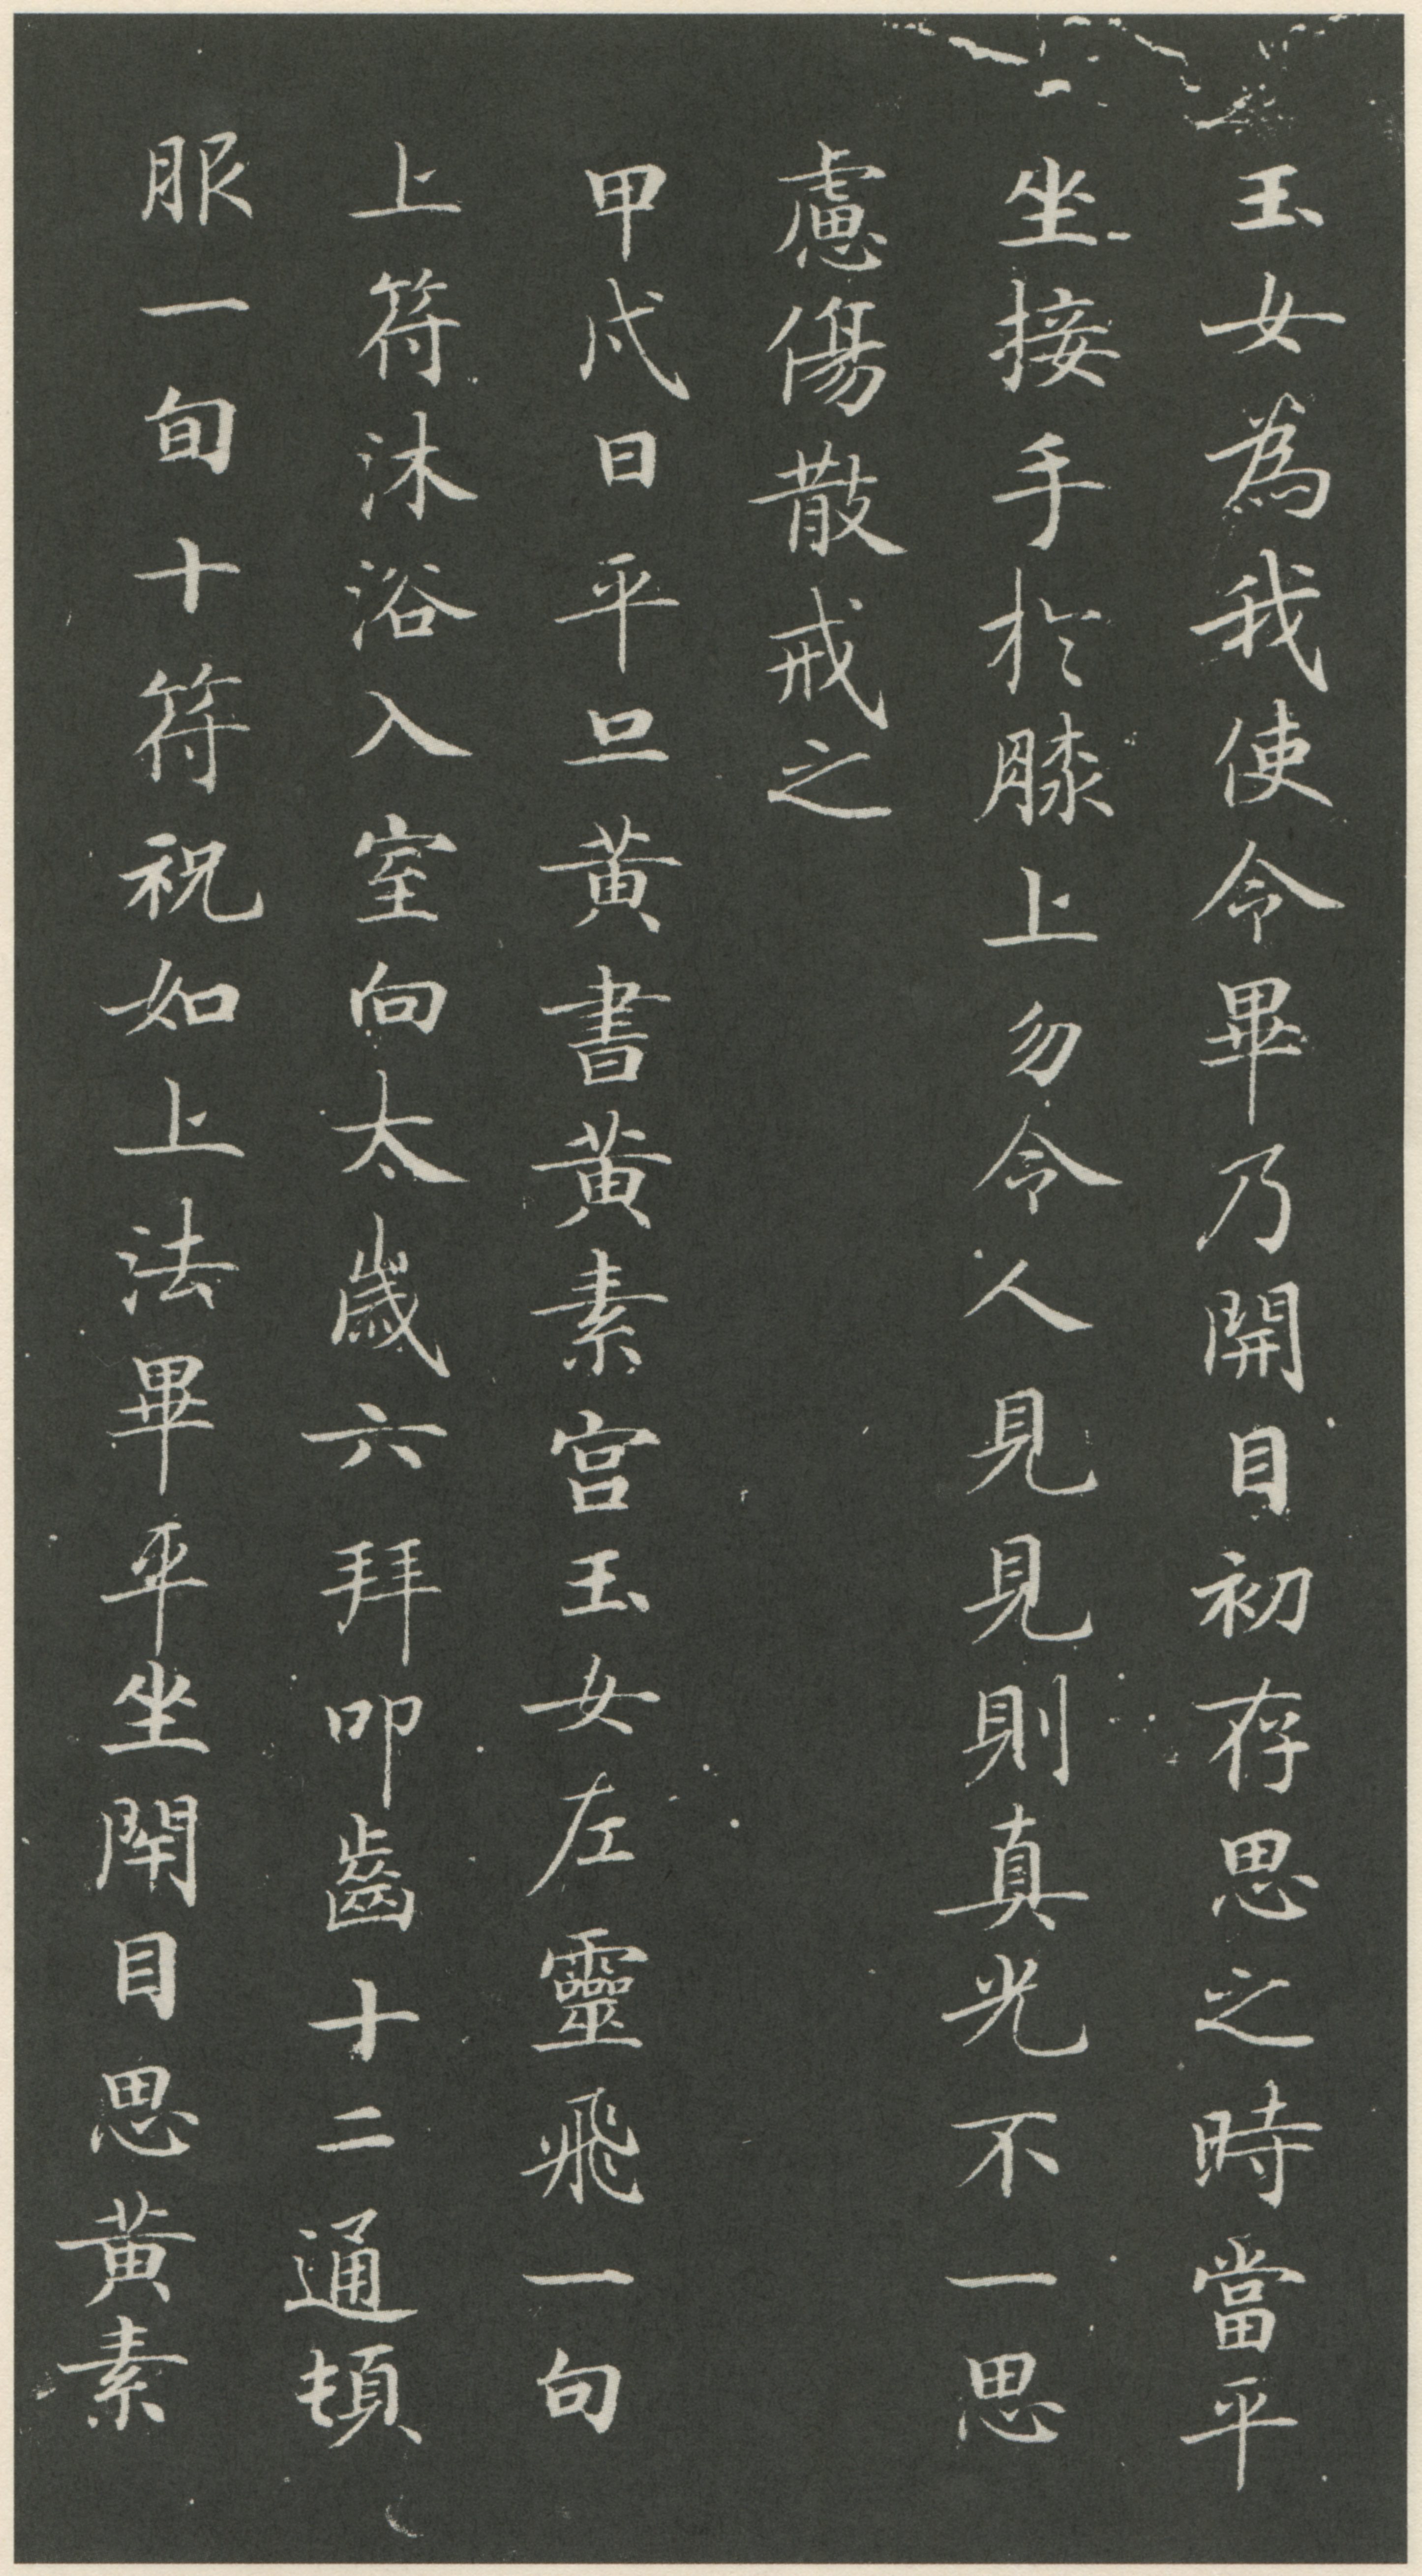 玉女為我使令畢乃開目初存思之時當平
坐接手於膝上勿令人見見則真光不一思
慮傷散戒之
甲戌日平旦黄書黄素宫玉女左靈飛一旬
上符沐浴入室向太歲六拜叩齒十二通頓
服一旬十符祝如上法畢平坐閇目思黄素